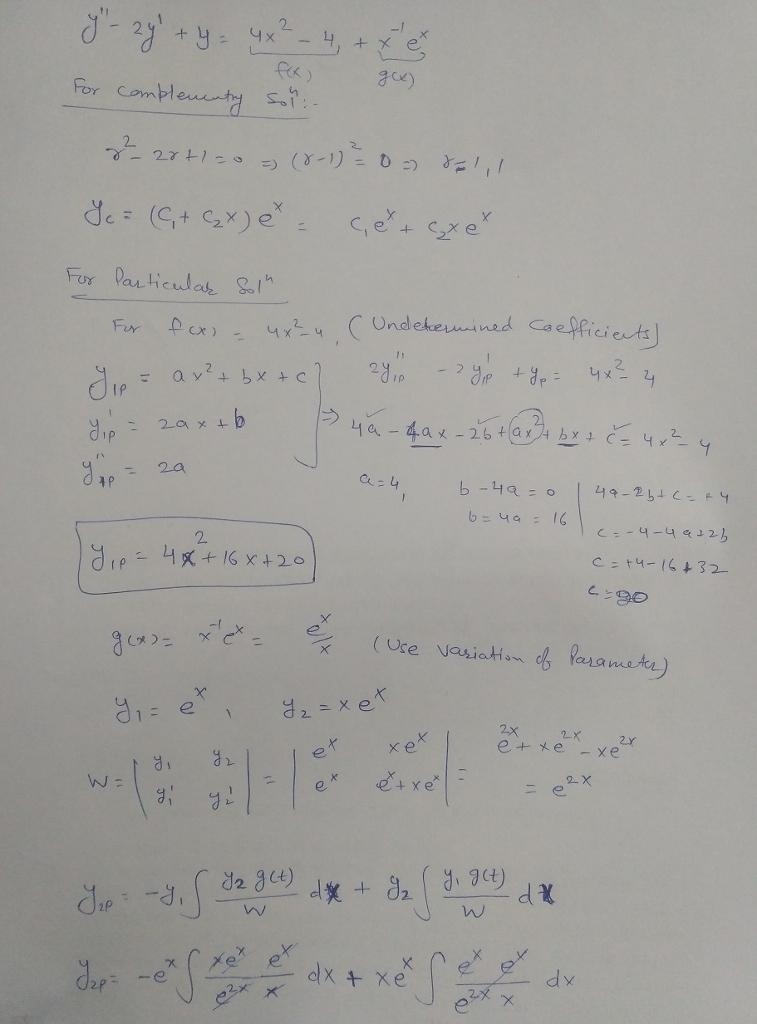 y'' - 2y' + y = 4x² - 4, + x⁻¹ eˣ
f(x) g(x)
For complementry Solⁿ:-
r² - 2r + 1 = 0 => (r-1)² = 0 => r = 1, 1
y_c = (C₁ + C₂x) eˣ = C₁eˣ + C₂xeˣ
For Particular Solⁿ
For f(x) = 4x² - 4, (Undetermined Coefficients)
y₁p = ax² + bx + c
2y₁p'' - 2y₁p' + y_p = 4x² - 4
y₁p' = 2ax + b
=> 4a - 4ax - 2b + ax² + bx + c = 4x² - 4
y₁p'' = 2a
a = 4, b - 4a = 0 | 4a - 2b + c = +4
b = 4a = 16 | c = -4 - 4a + 2b
y₁p = 4x² + 16x + 20
c = +4 - 16 + 32
c = 20
g(x) = x⁻¹eˣ = eˣ/x (Use Variation of Parameter)
y₁ = eˣ, y₂ = xeˣ
W = | y₁ y₂ | = | eˣ xeˣ | = e²ˣ + xe²ˣ - xe²ˣ
| y₁' y₂' | | eˣ eˣ + xeˣ | = e²ˣ
y₂p = -y₁ ∫ y₂ g(t)/W dx + y₂ ∫ y₁ g(t)/W dx
y₂p = -eˣ ∫ xeˣ eˣ/e²ˣ x dx + xeˣ ∫ eˣ eˣ/e²ˣ x dx